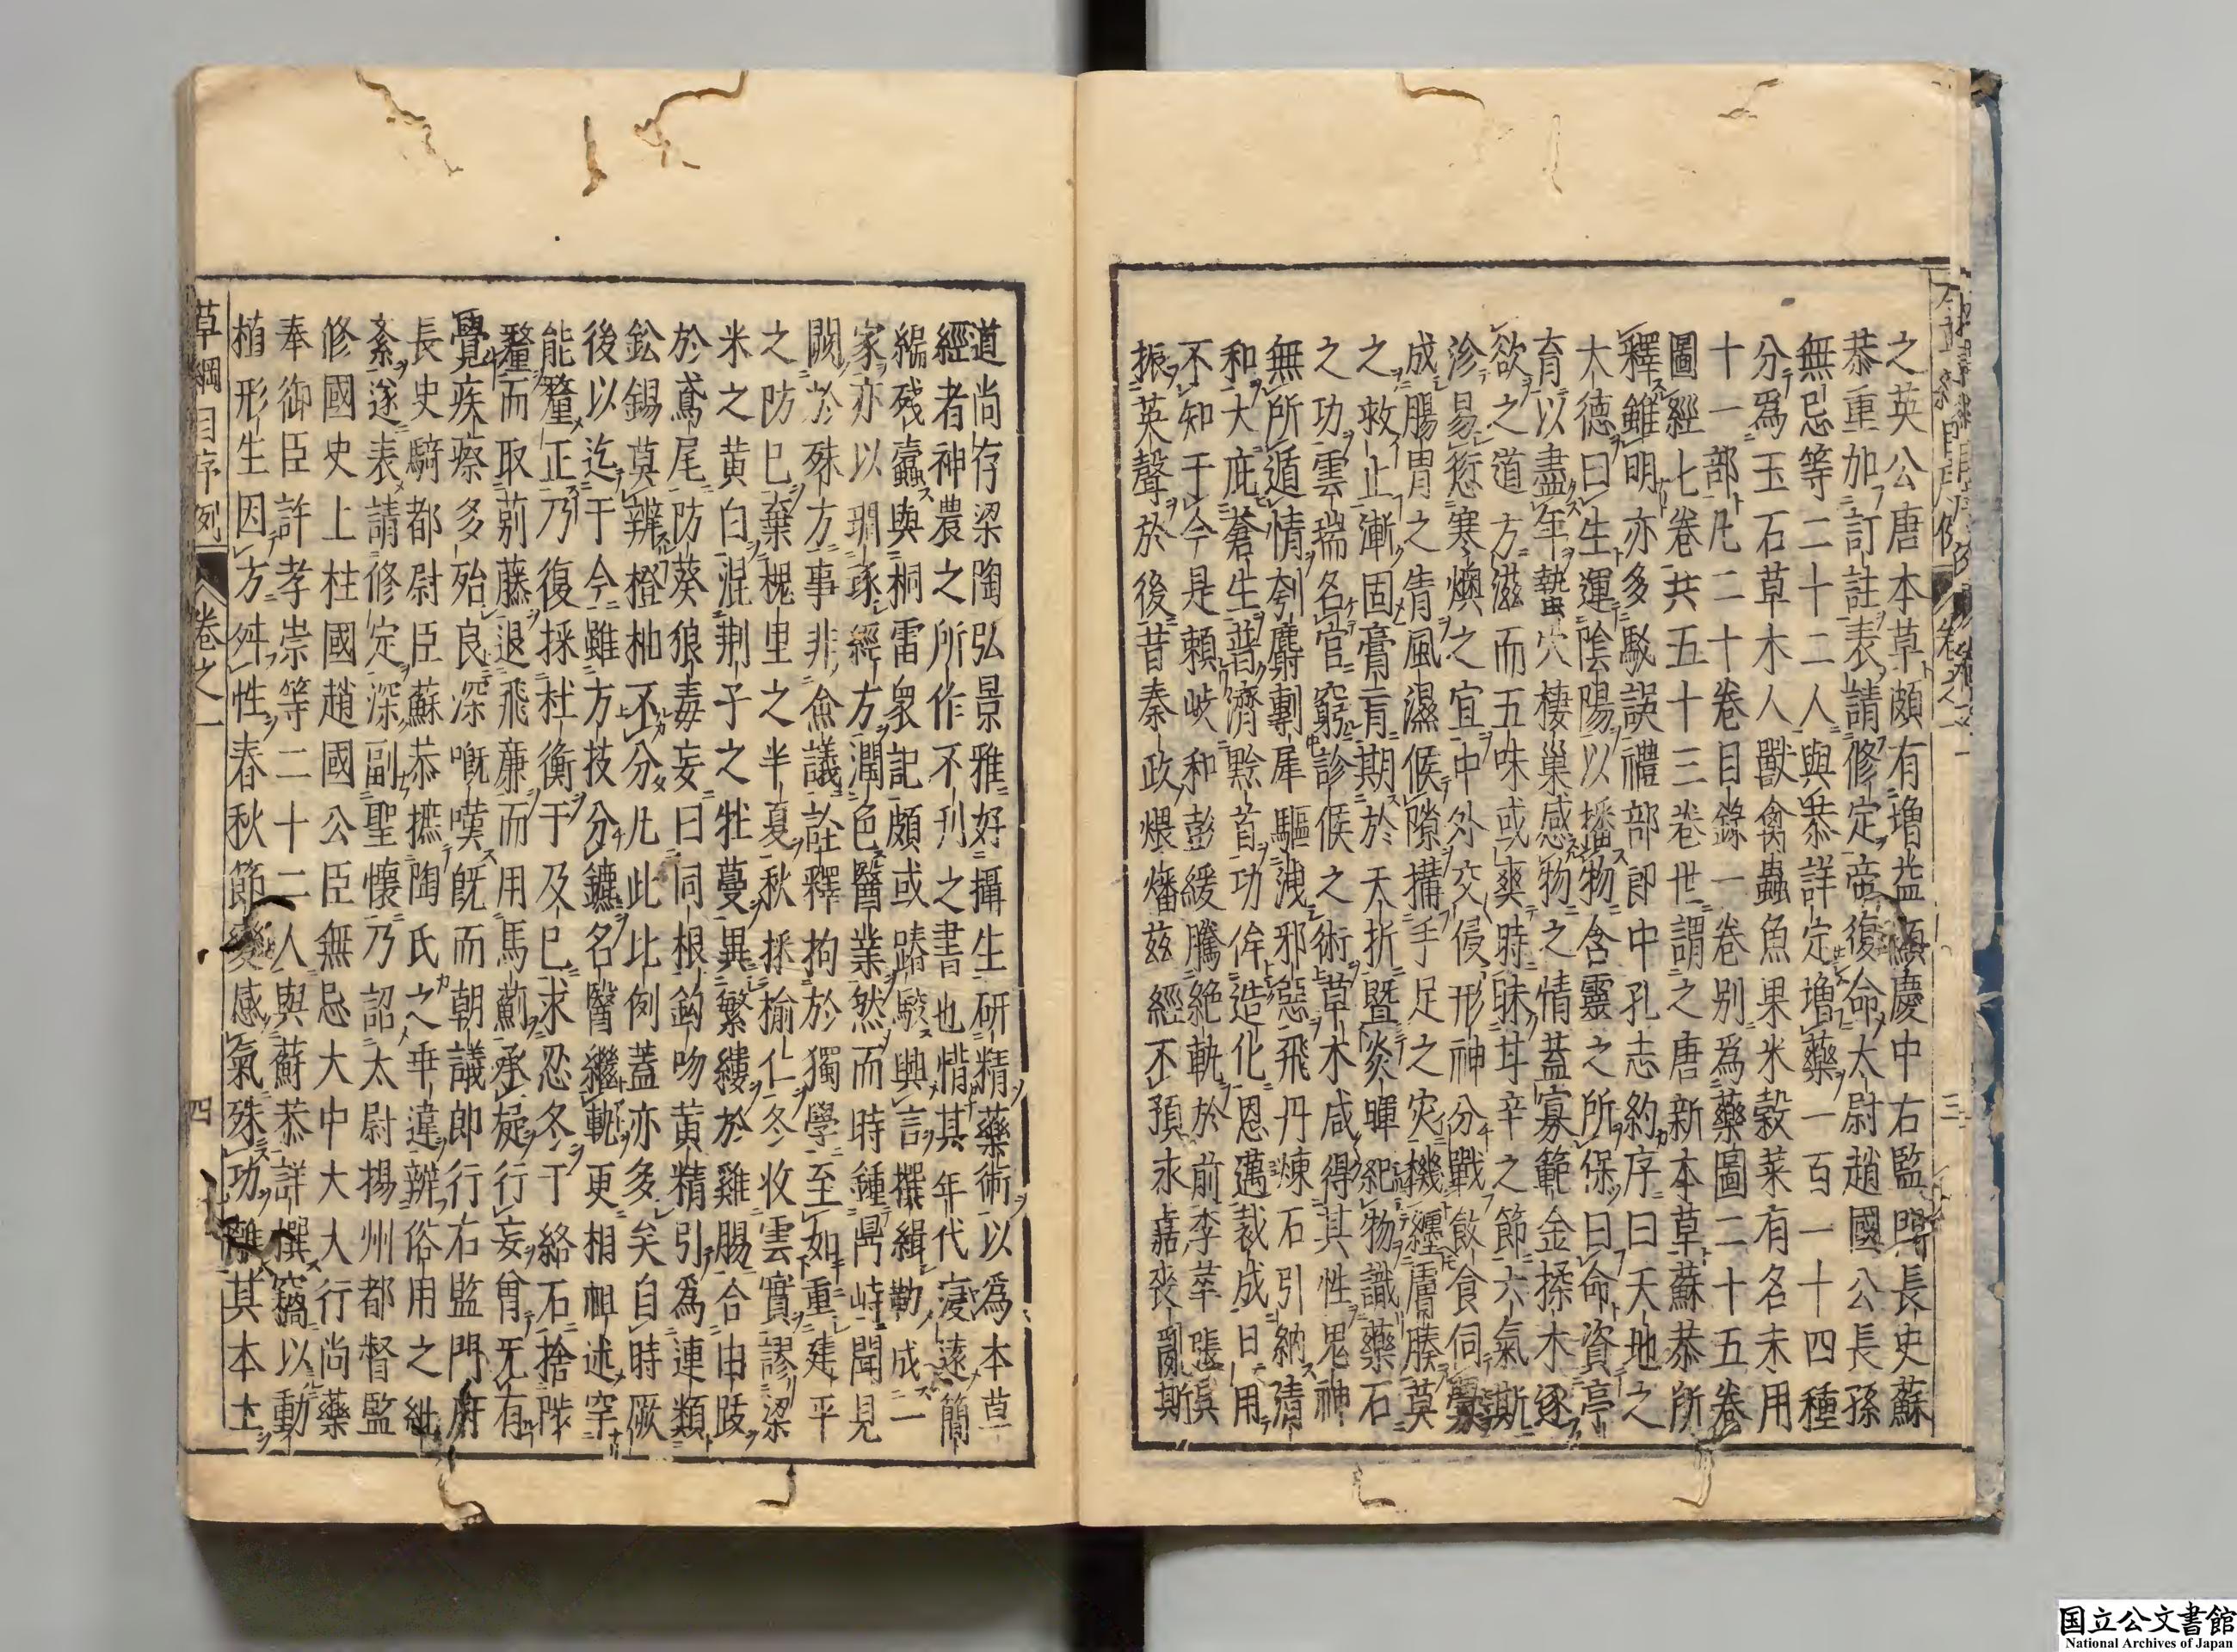 之英公唐本草頗有增益顯慶中右監門長史蘇
恭重加訂註表請修定帝復命太尉趙國公長孫
無忌等二十二人與恭詳定增藥一百一十四種
分爲玉石草木人獸禽蟲魚果米穀菜有名未用
十一部凡二十卷目錄一卷別爲藥圖二十五卷
圖經七卷共五十三卷世謂之唐新本草蘇恭所
釋雖明亦多駁誤禮部郎中孔志約序曰天地之
大德曰生運陰陽以播物含靈之所保曰命資亭
育以盡年蟄穴棲巢感物之情蓋寡範金揉木逐
欲之道方滋而五味或爽時昧甘辛之節六氣斯
沴易愆寒燠之宜中外交侵形神分戰飲食伺釁
成腸胃之眚風濕候隙搆手足之灾機纏膚腠莫
之救止漸固膏肓期於夭折暨炎暉紀物識藥石
之功雲瑞名官窮診候之術草木咸得其性鬼神
無所遁情刳麝剸犀驅洩邪惡飛丹煉石引納清
和大庇蒼生普濟黔首功侔造化恩邁裁成日用
不知于今是賴岐和彭緩騰絶軌於前李華張吳
振英聲於後昔秦政煨燔茲經不預永嘉喪亂斯
三
道尚存梁陶弘景雅好攝生研精藥術以爲本草
經者神農之所作不刋之書也惜其年代寖遠簡
編殘蠧與桐雷衆記頗或踳駮興言撰緝勒成一
家亦以琱琢經方潤色醫業然而時鍾鼎峙聞見
闕於殊方事非僉議詮釋拘於獨學至如重建平
之防已棄槐里之半夏秋採榆仁冬收雲實謬粱
米之黄白混荆子之牡蔓異繁縷於雞腸合由跋
於鳶尾防葵狼毒妄曰同根鈎吻黄精引爲連類
鈆錫莫辨橙柚不分凡此比例蓋亦多矣自時厥
後以迄于今雖方技分鑣名醫繼軌更相祖述罕
能釐正乃復採杜衡于及已求忍冬于絡石捨陟
釐而取莂藤退飛廉而用馬薊承疑行妄曾无有
覺疾瘵多殆良深慨嘆既而朝議郎行右監門府
長史騎都尉臣蘇恭摭陶氏之乖違辨俗用之紕
紊遂表請修定深副聖懷乃詔太尉揚州都督監
修國史上柱國趙國公臣無忌大中大夫行尚藥
奉御臣許孝崇等二十二人與蘇恭詳撰竊以動
植形生因方舛性春秋節變感氣殊功離其本土
草綱目序例 卷之一 四
国立公文書館
National Archives of Japan